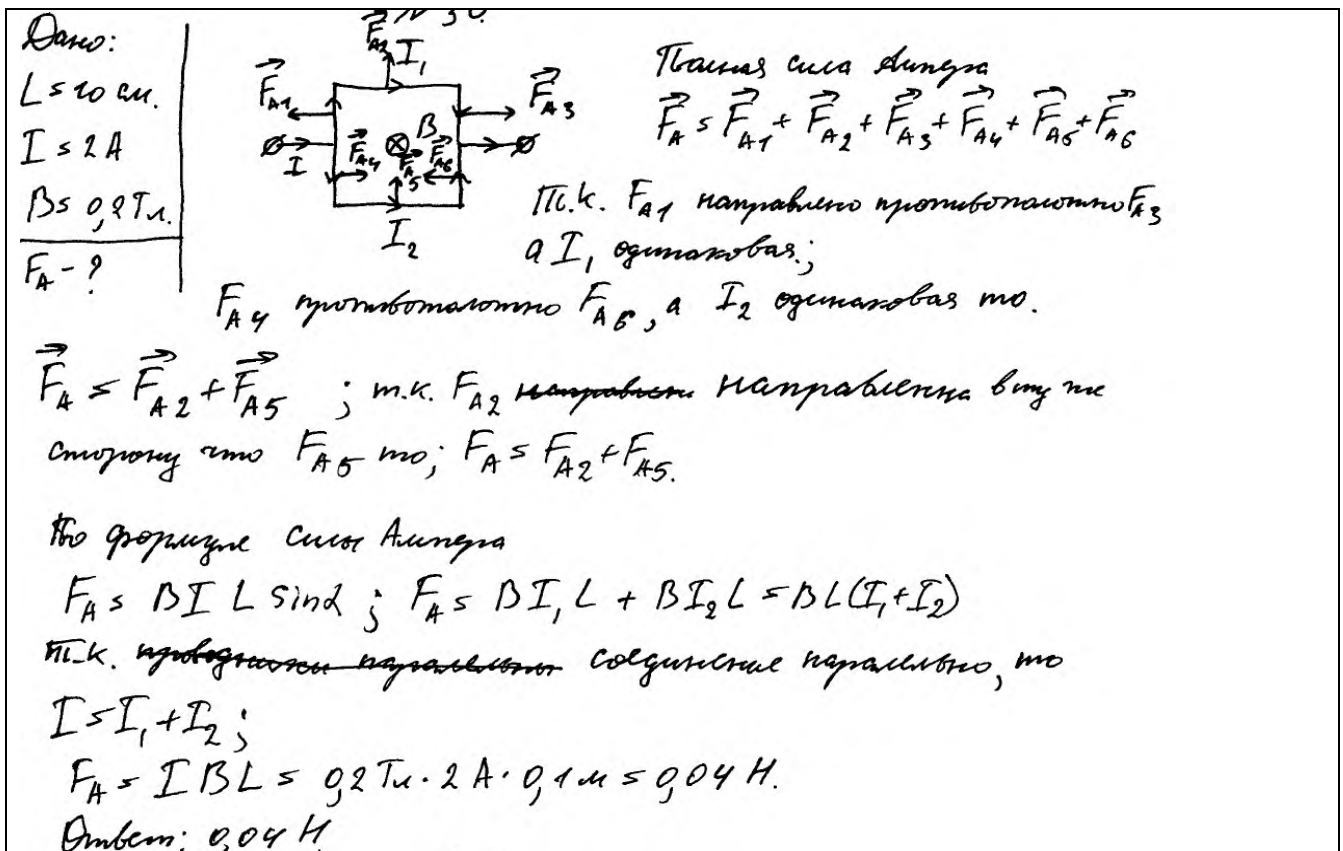 № 30.
Дано:
L = 10 см.
I = 2 А
B = 0,2 Тл.
F_A - ?
F⃗_A2 I_1
F⃗_A1 F⃗_A3
B
I F⃗_A4 F⃗_A5 F⃗_A6
I_2
Полная сила Ампера
F⃗_A = F⃗_A1 + F⃗_A2 + F⃗_A3 + F⃗_A4 + F⃗_A5 + F⃗_A6
Т.к. F_A1 направлено противоположно F_A3
а I_1 одинаковая;
F_A4 противоположно F_A6, а I_2 одинаковая то.
F⃗_A = F⃗_A2 + F⃗_A5 ; т.к. F_A2 направленна в ту же
сторону что F_A5 то; F_A = F_A2 + F_A5.
По формуле силы Ампера
F_A = B I L sinα ; F_A = BI_1L + BI_2L = BL(I_1+I_2)
Т.к. проводники паралельны соединение паралельно, то
I = I_1 + I_2 ;
F_A = I B L = 0,2 Тл · 2 А · 0,1 м = 0,04 Н.
Ответ: 0,04 Н